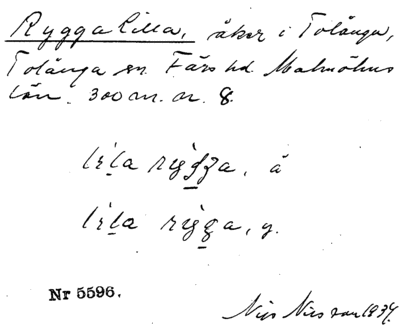 Rygga lilla, åker i Tolånga,
Tolånga sn. Färs hd. Malmöhus
län. 300 m. n. g.
lìl̲a rìg̲ʒa, ä
lìl̲a rìg̲a, y.
Nr 5596.
Nils Nilsson 1934.